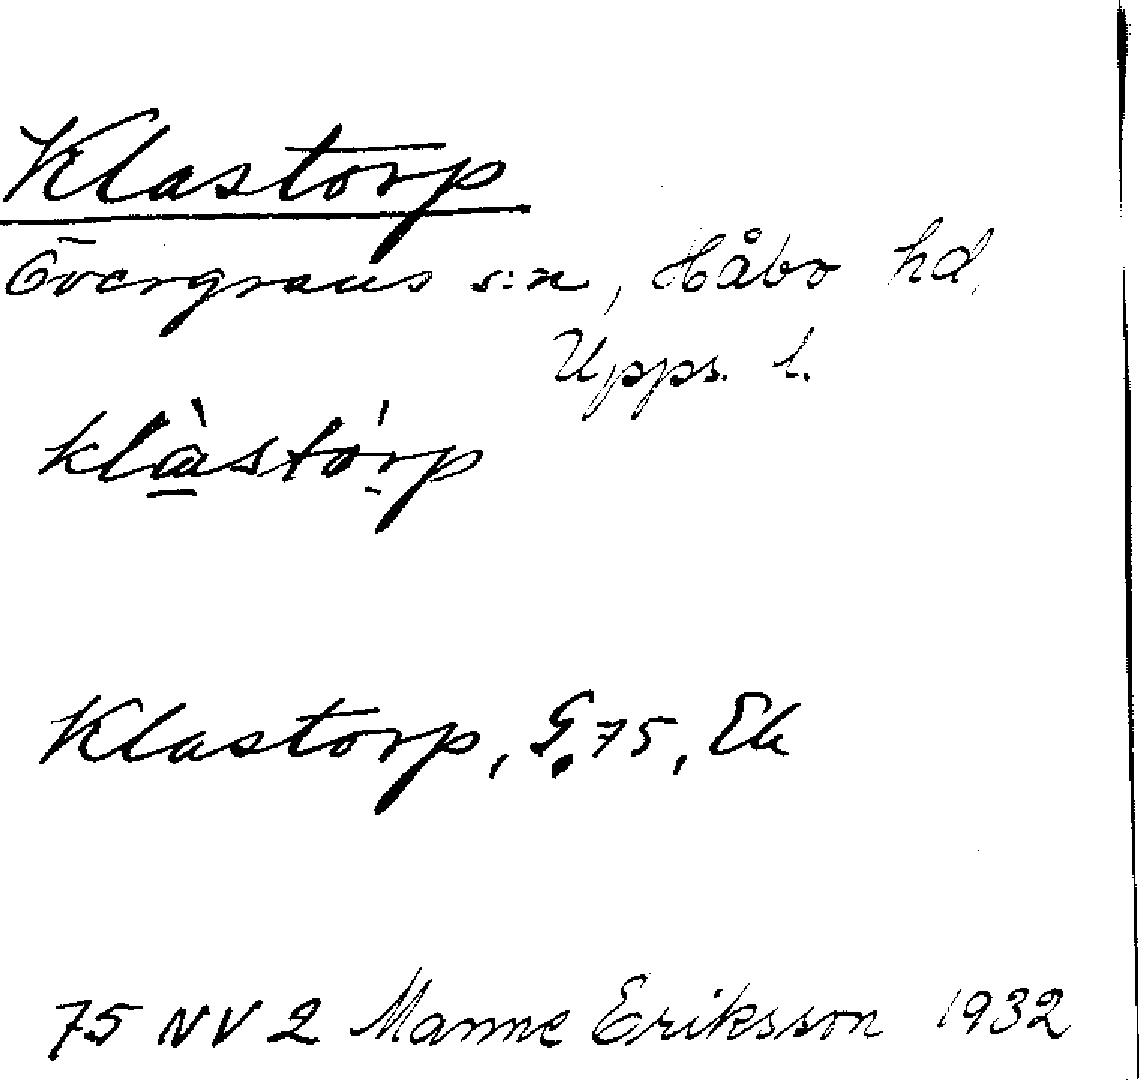 Klastorp
Övergrans s:n, Håbo hd,
Upps. l.
klàstórp
Klastorp, G. 75, Ek
75 NV 2 Manne Eriksson 1932